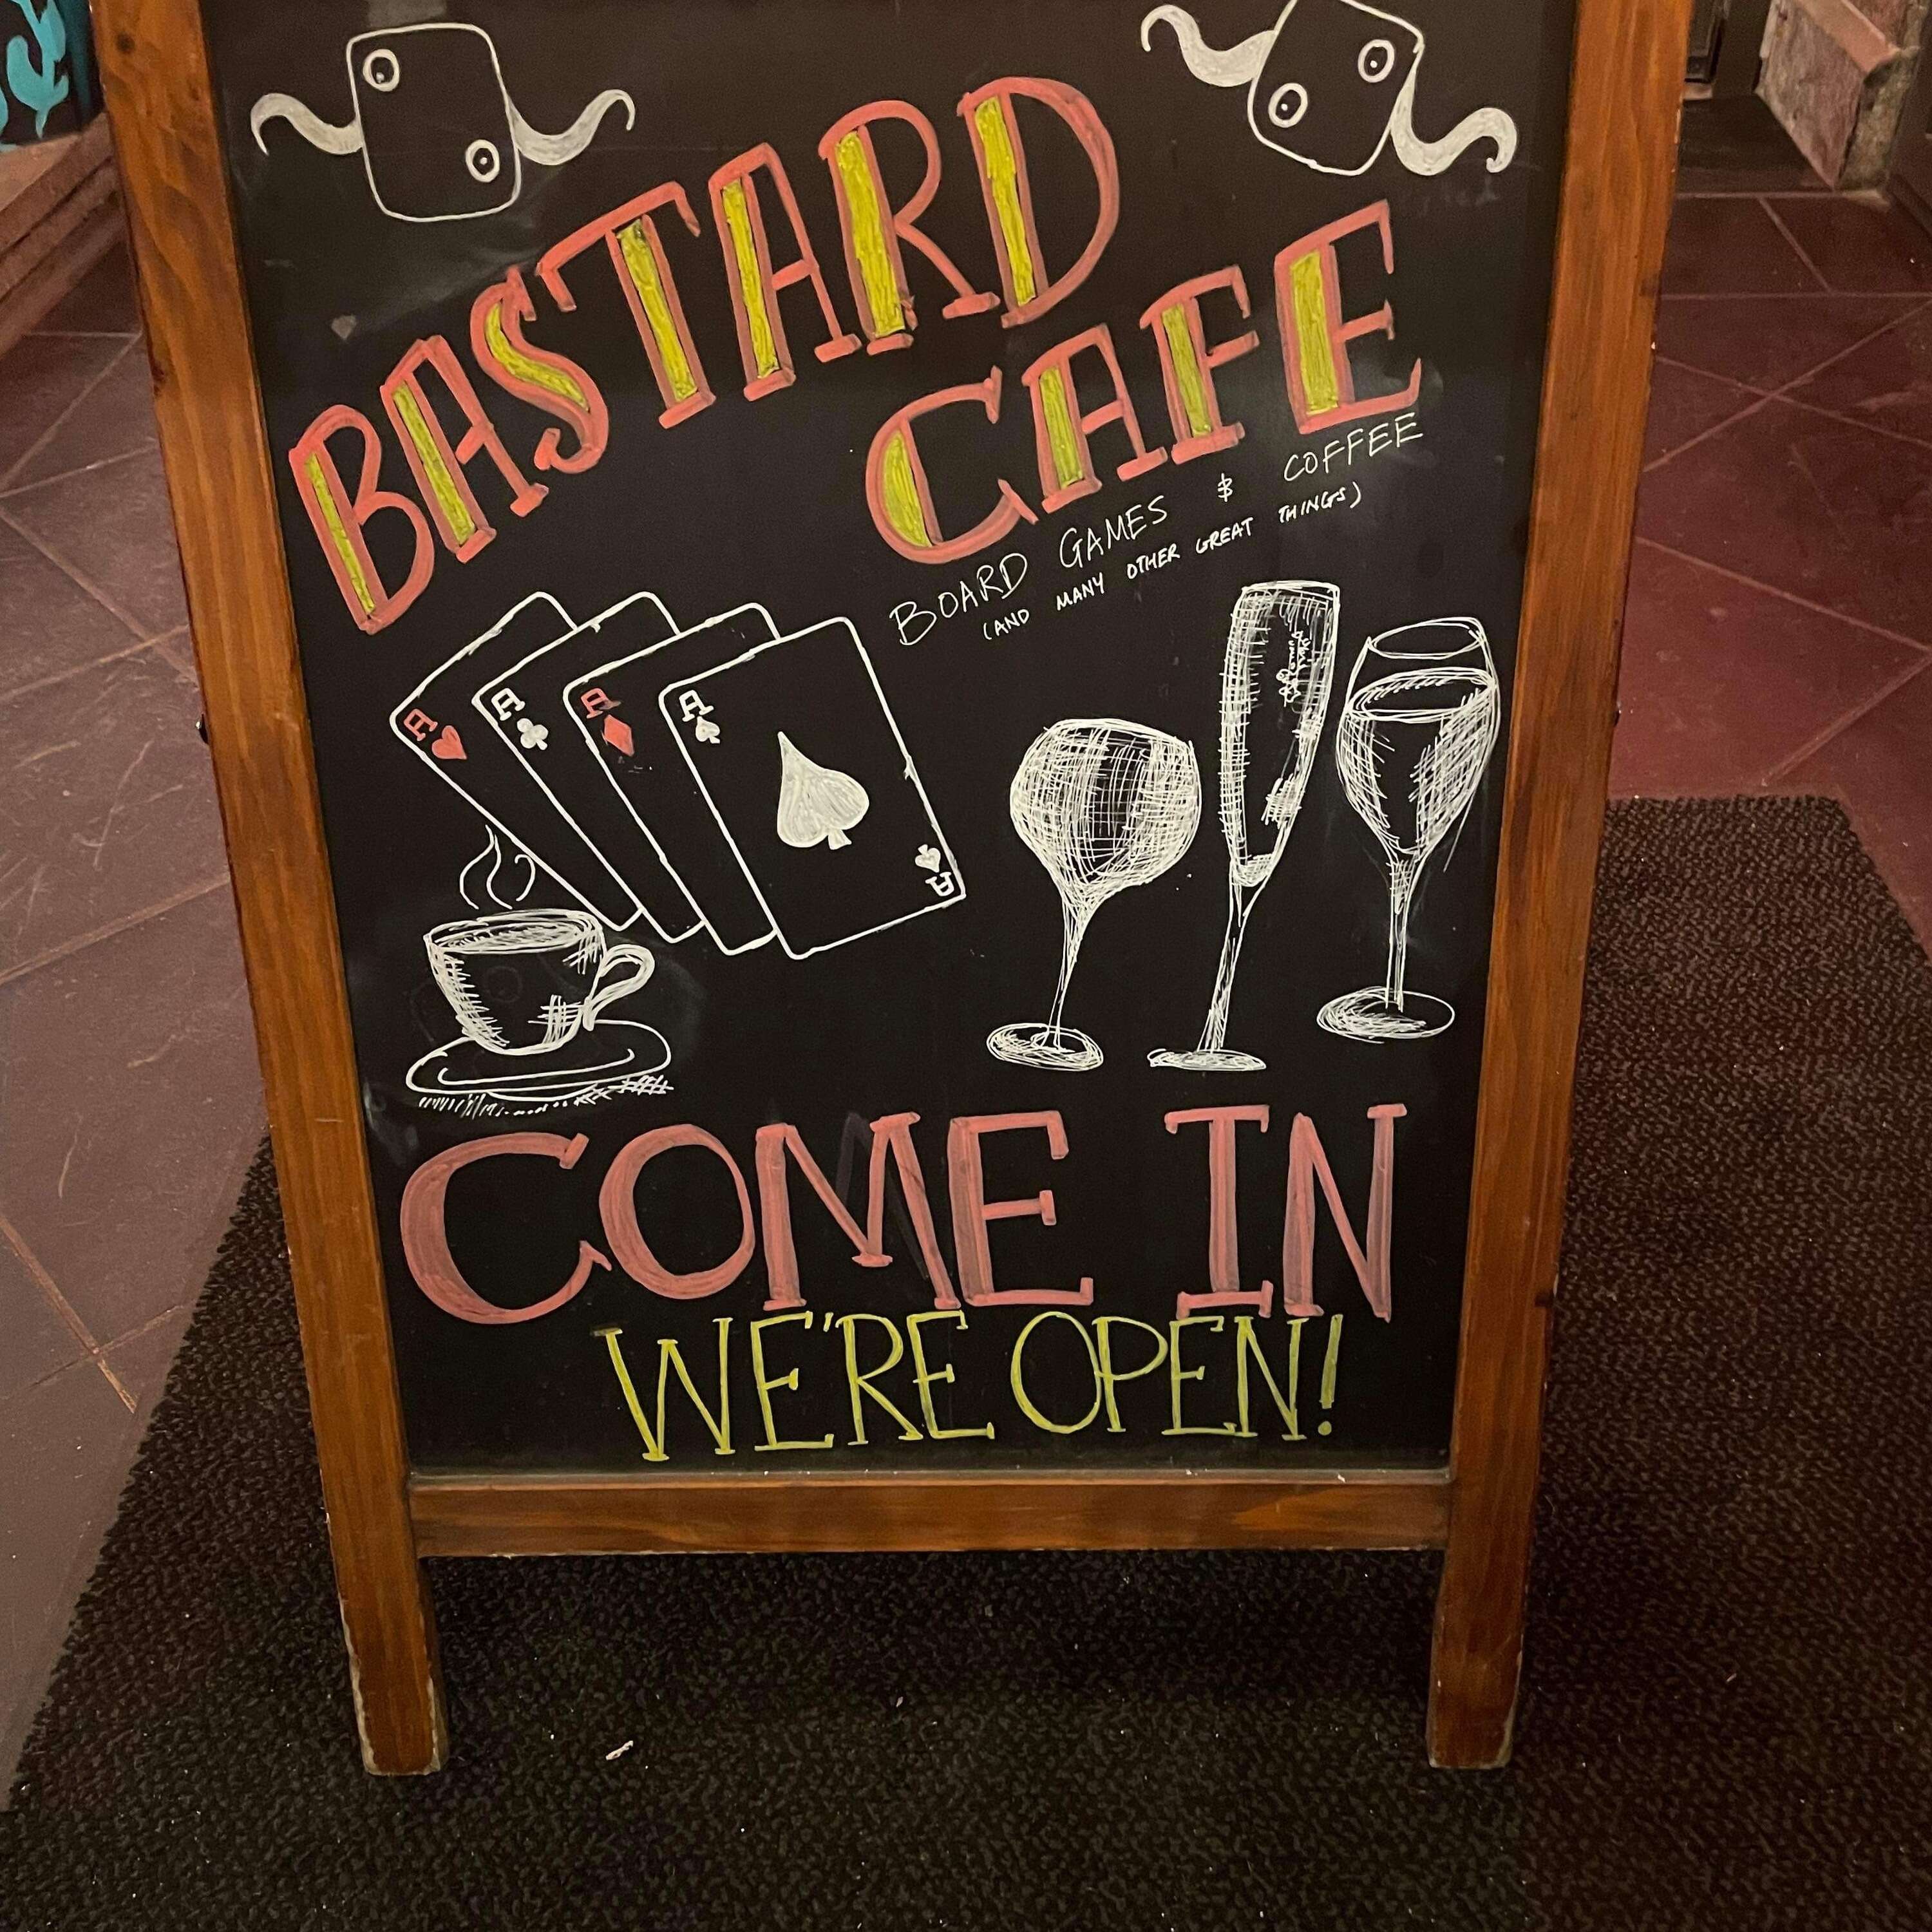 BASTARD
CAFE
BOARD GAMES & COFFEE
(AND MANY OTHER GREAT THINGS)
A
A
A
A
A
COME IN
WE'RE OPEN!